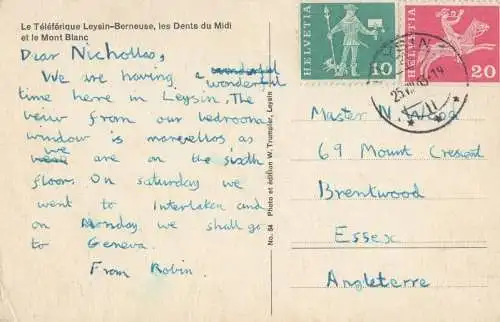 Le Téléférique Leysin-Berneuse, les Dents du Midi
et le Mont Blanc
Dear Nichollas,
We are having a wonderful
wonderful
time here in Leysin. The
veiw from our bedroom
window is marvellos as
we
are on the sixth
floor. On saturday we
went to Interlaken and
on Monday we shall go
to Geneva.
From Robin.
No. 84 Photo et édition W. Trumpler, Leysin
HELVETIA
10
HELVETIA
20
Master N. Wood
69 Mount Crescent
Brentwood
Essex
Angleterre